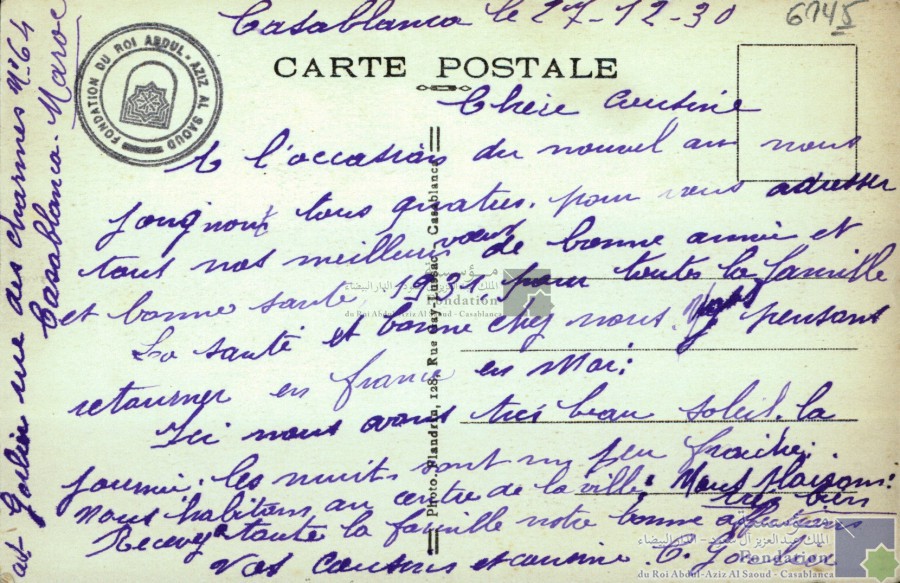 Casablanca le 27-12-30
6145
CARTE POSTALE
FONDATION DU ROI ABDUL-AZIZ AL SAOUD
Chère cousine
A l'occasion du nouvel an nous
joignont tous quatres. pour vous adresser
tout nos meilleurs vœux de bonne année et
et bonne santé, 1931, pour toutes la famille
La santé et bonne chez nous. pensons
retourner en france en Mai:
Ici nous avons très beau soleil. la
journée. les nuits sont un peu fraiche.
Nous habitons au centre de la ville, Nous plaisons:
très bien
Recevez toute la famille notre bonne affections
Vos cousins et cousine
rue des charmes N° 64
Casablanca-Maroc
Photo. Flandrin, 128, Rue Gay-Lussac, Casablanca
مؤسسة
الملك عبد العزيز آل سعود - الدار البيضاء
Fondation
du Roi Abdul-Aziz Al Saoud - Casablanca
مؤسسة
الملك عبد العزيز آل سعود - الدار البيضاء
Fondation
du Roi Abdul-Aziz Al Saoud - Casablanca